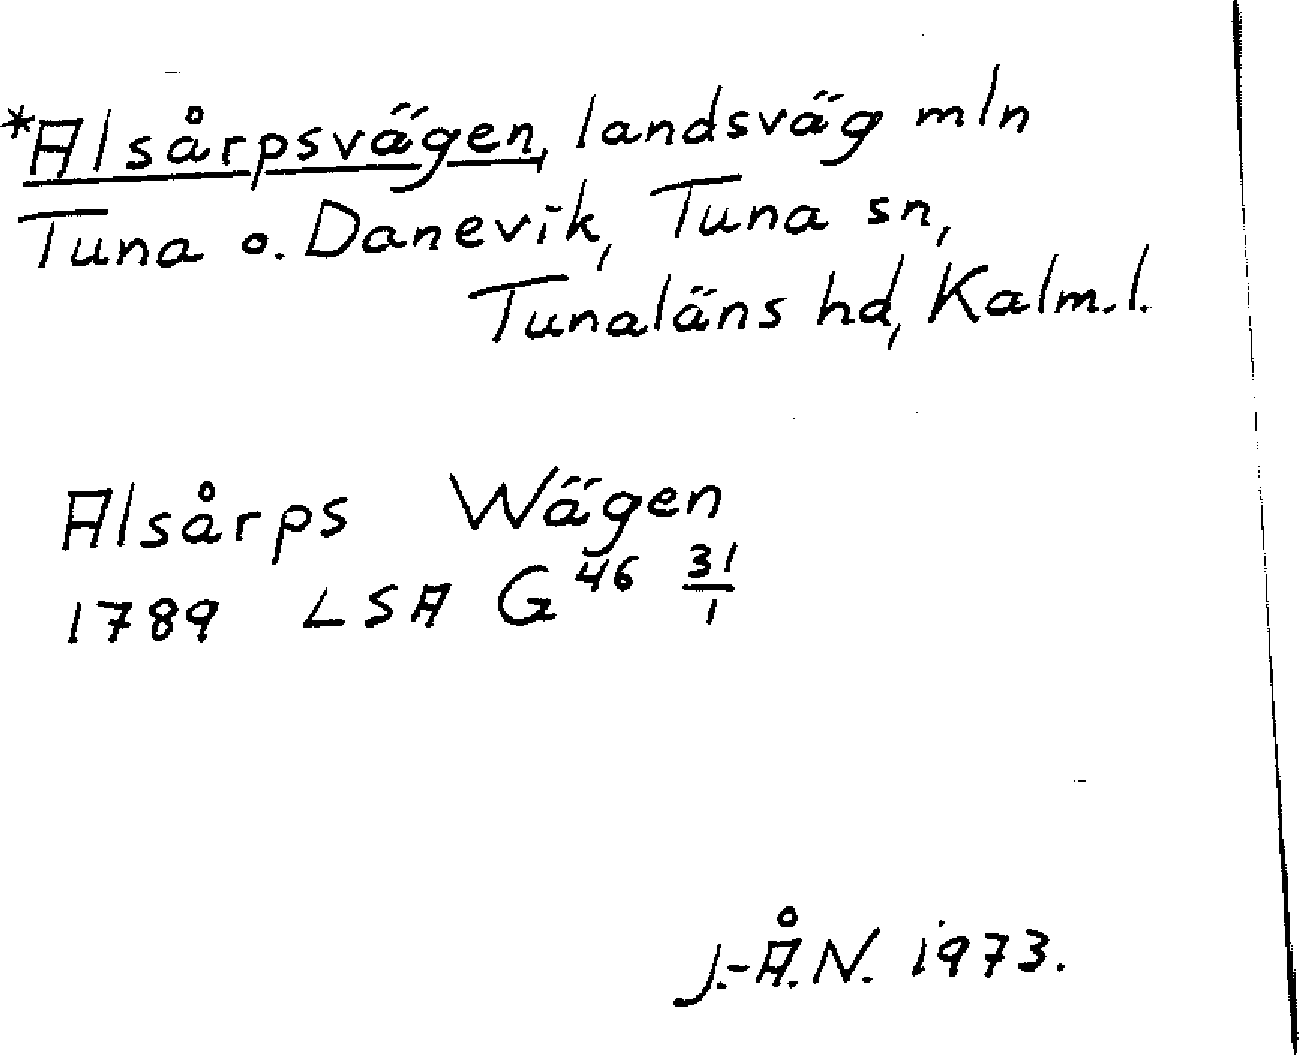 *Alsårpsvägen, landsväg mln
Tuna o. Danevik, Tuna sn,
Tunaläns hd, Kalm.l.
Alsårps Wägen
1789 LSA G46 31/1
J.-Å.N. 1973.